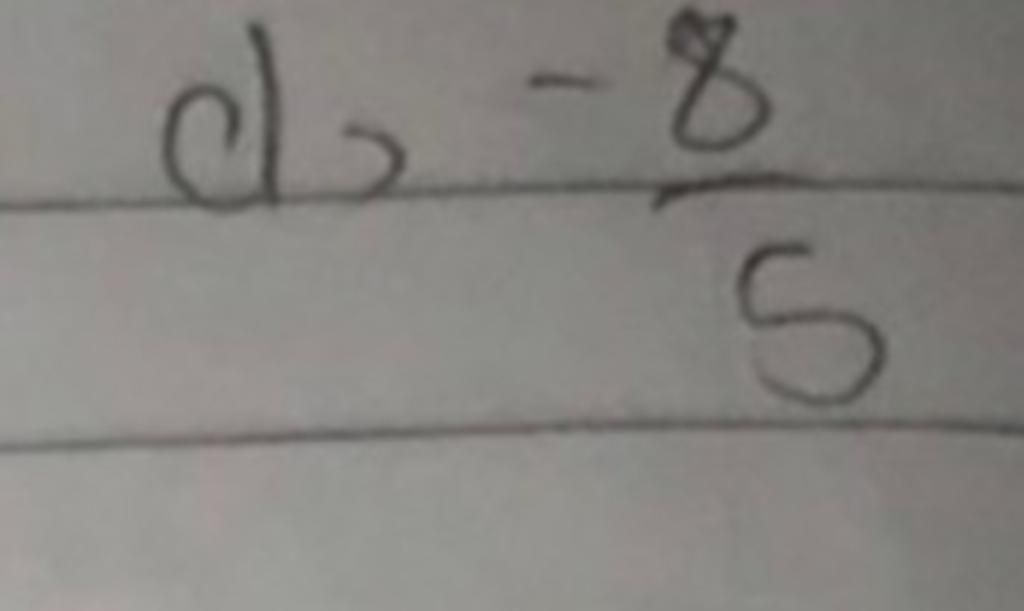 d, -8/5